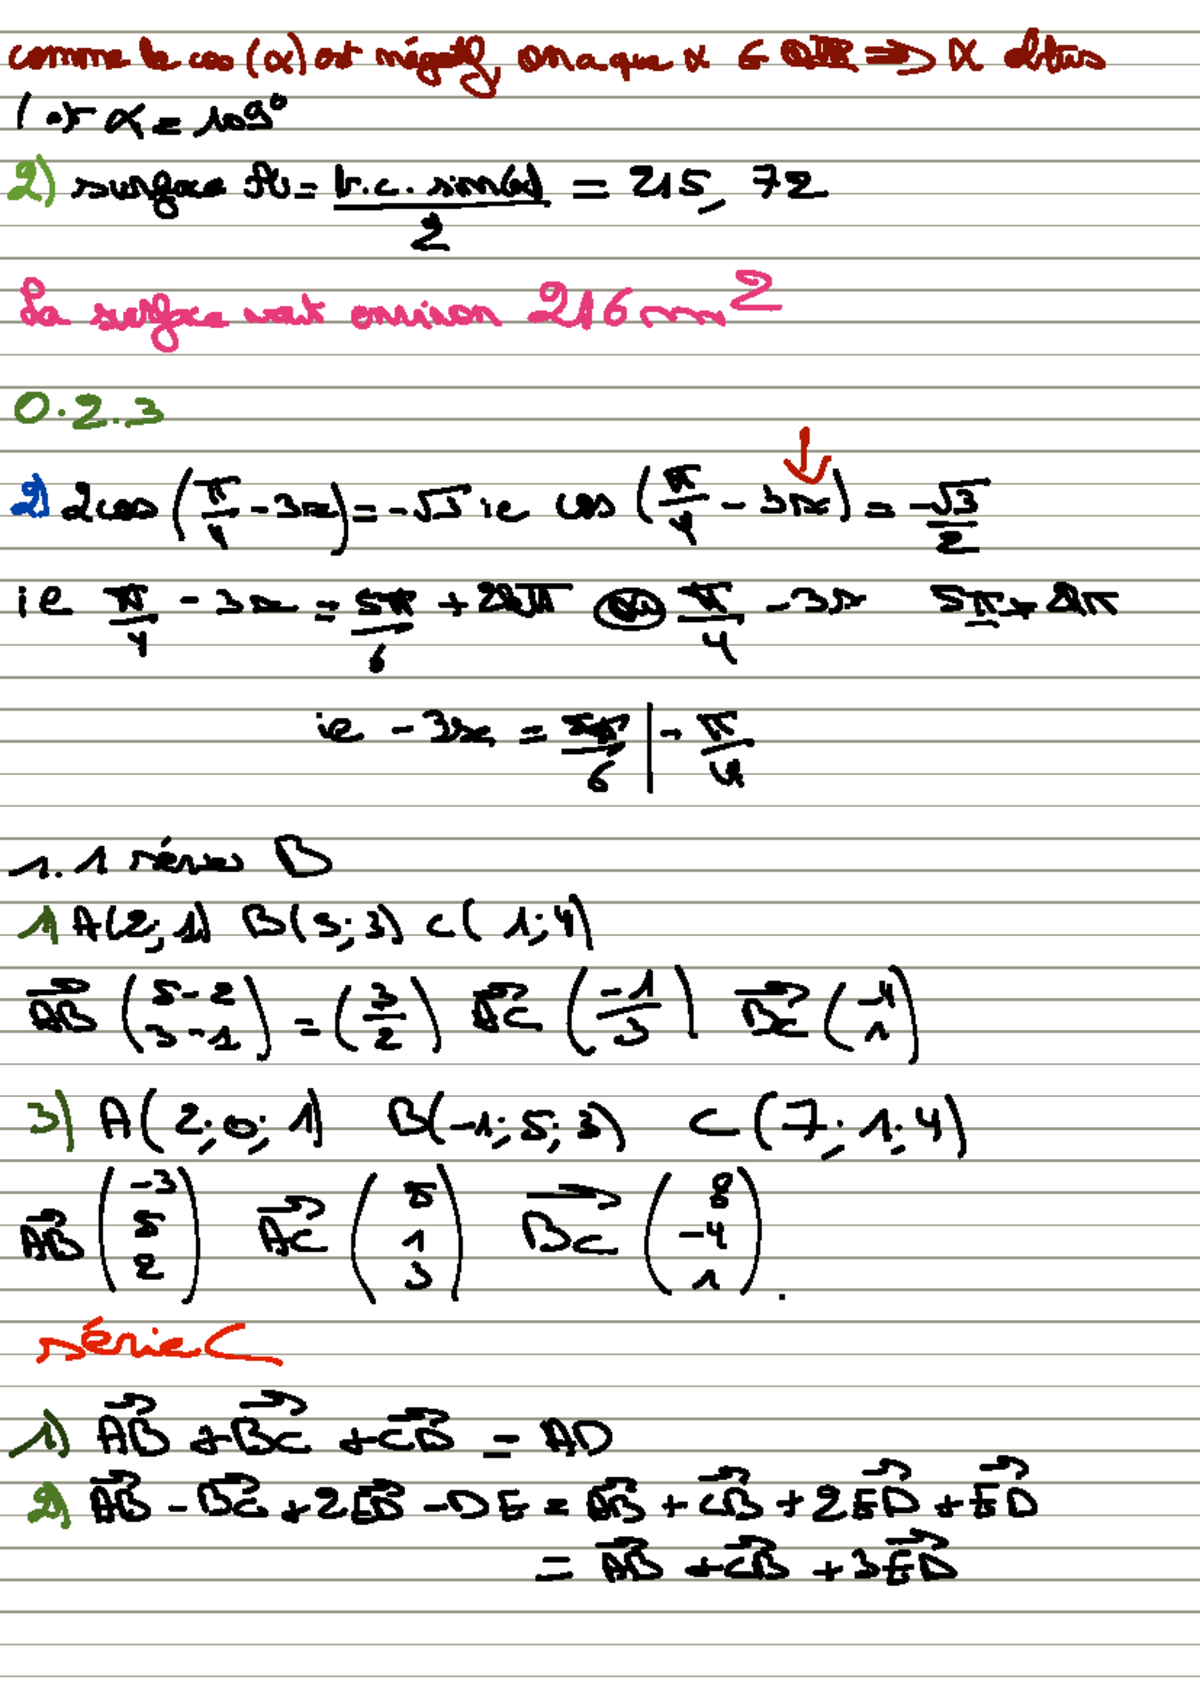 comme le cos (α) est négatif, on a que α ∈ QII ⟹ α obtus
α = 109°
2) surface A = b.c. sin(α) / 2 = 215,72
La surface vaut environ 216 mm²
0.2.3
2) 2cos (π/4 - 3x) = -√3 ie cos (π/4 - 3x) = -√3/2
ie π/4 - 3x = 5π/6 + 2kπ ou π/4 - 3x 5π + 2kπ
ie - 3x = 5π/6 | - π/4
1.1 série B
1) A(2;1) B(5;3) C(1;4)
AB→ (5-2 / 3-1) = (3 / 2) AC→ (-1 / 3) BC→ (-4 / 1)
3) A(2;0;1) B(-1;5;3) C(7;1;4)
AB→ (-3 / 5 / 2) AC→ (5 / 1 / 3) BC→ (8 / -4 / 1).
série C
1) AB→ + BC→ + CD→ = AD
2) AB→ - BC→ + 2ED→ - DE = AB→ + CB→ + 2ED→ + ED→
= AB→ + CB→ + 3ED→